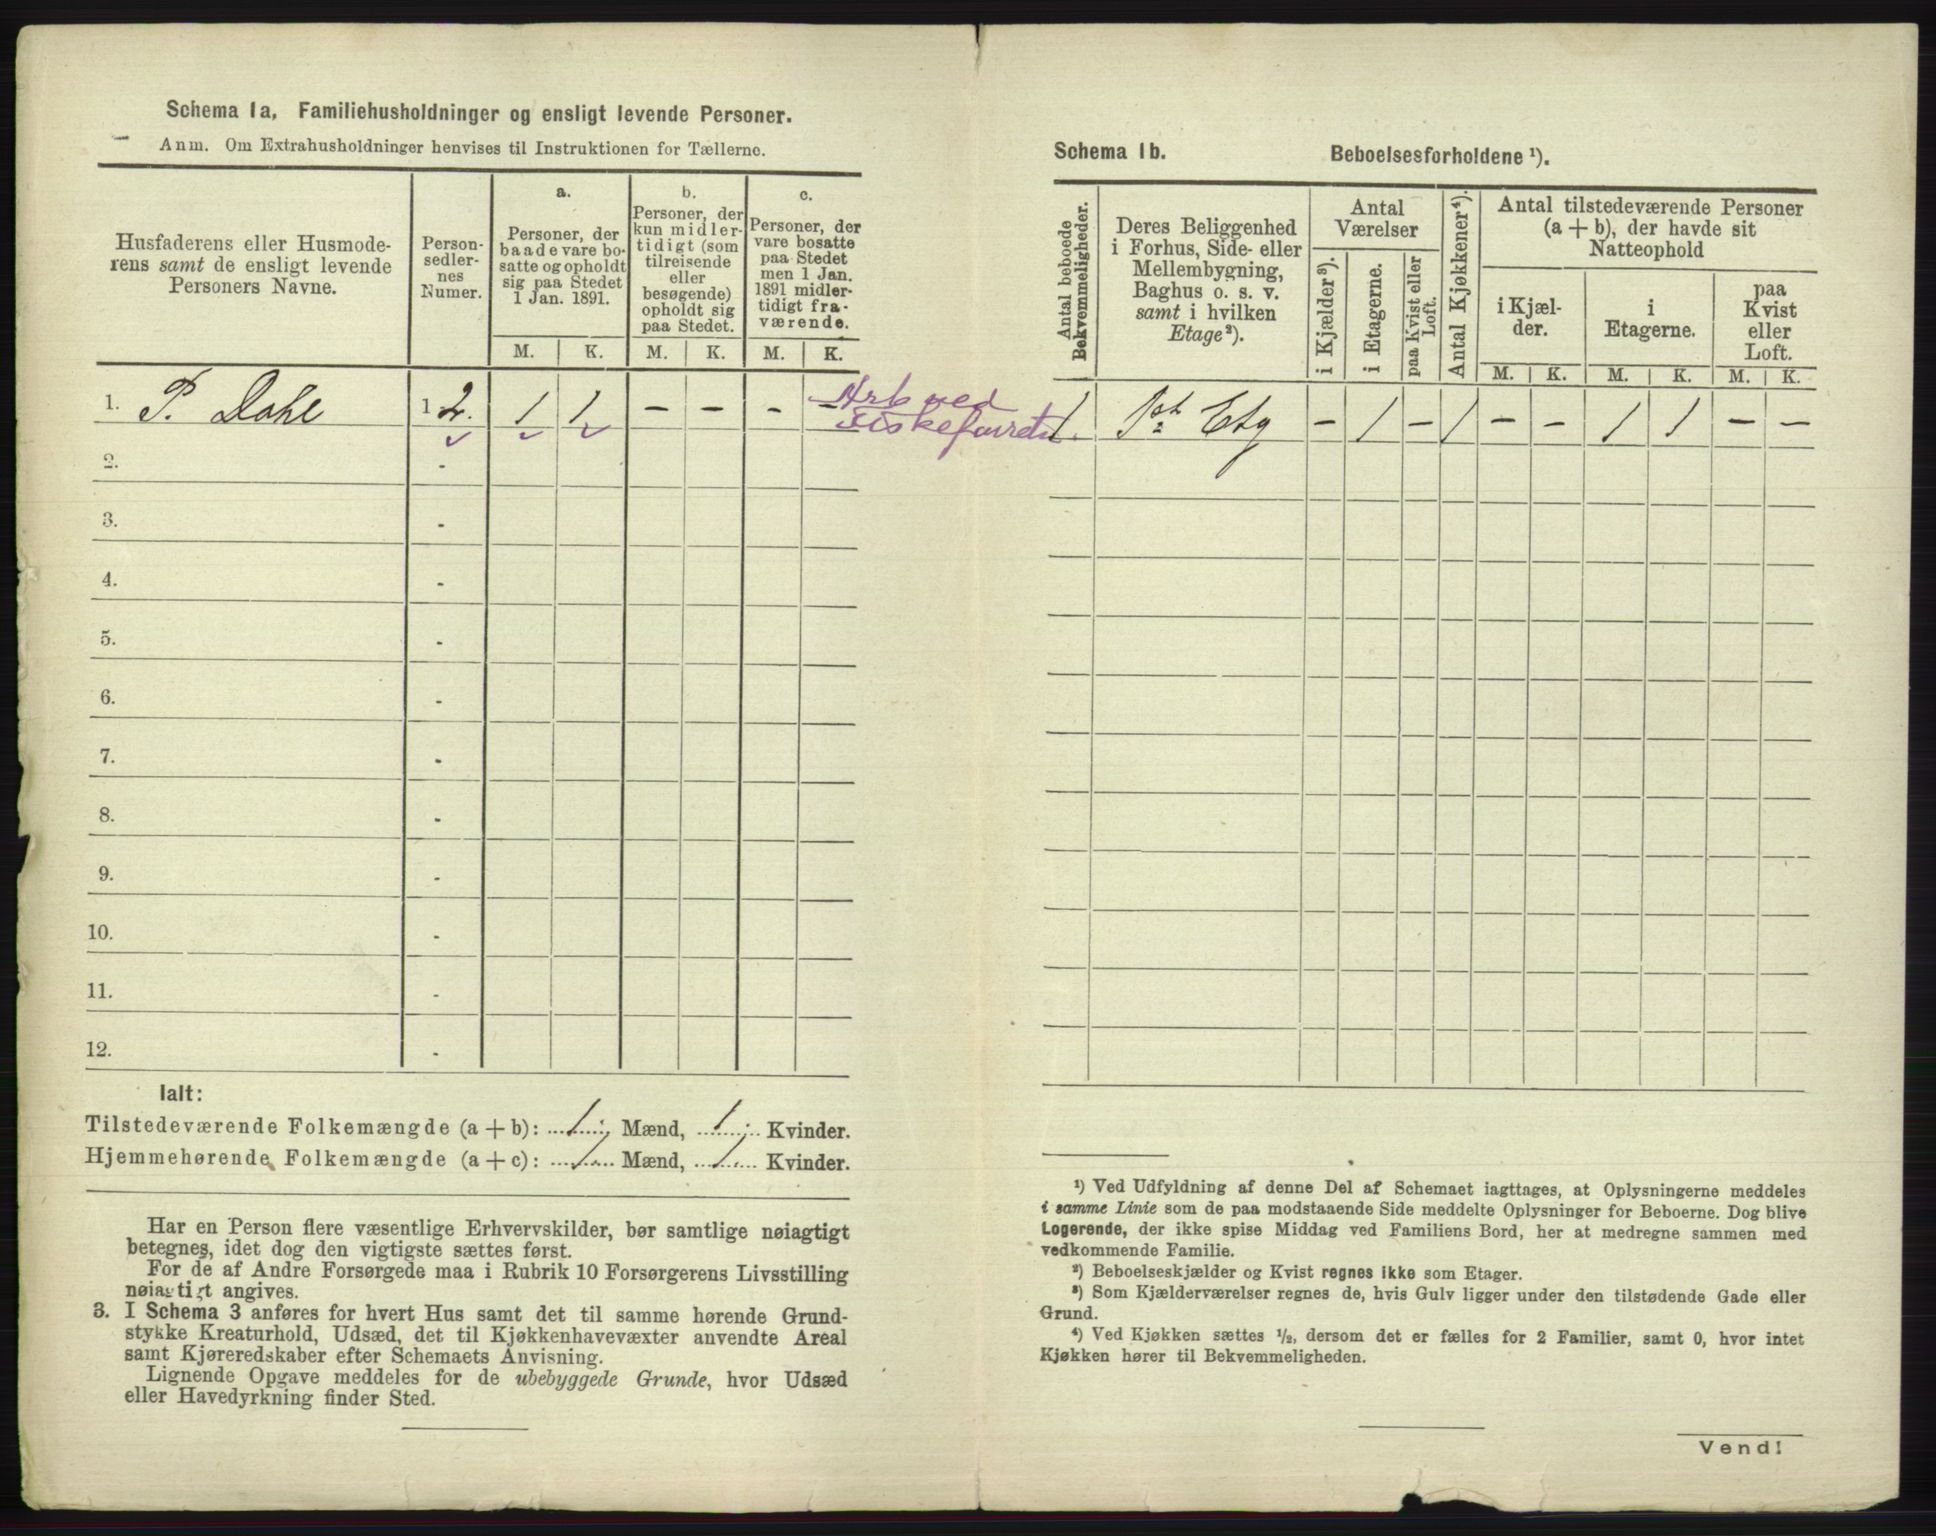 Schema 1a, Familiehusholdninger og ensligt levende Personer.
Anm. Om Extrahusholdninger henvises til Instruktionen for Tællerne.
Husfaderens eller Husmode-
rens samt de ensligt levende
Personers Navne.
Person-
sedler-
nes
Numer.
a.
Personer, der
baade vare bo-
satte og opholdt
sig paa Stedet
1 Jan. 1891.
b.
Personer, der
kun midler-
tidigt (som
tilreisende
eller
besøgende)
opholdt sig
paa Stedet.
c.
Personer, der
vare bosatte
paa Stedet
men 1 Jan.
1891 midler-
tidigt fra-
værende.
M. K. M. K. M. K.
1. P. Dahl 1 2. 1 1 – – – –
Arb ved
2. -
3. -
4. -
5. -
6. -
7. -
8. -
9. -
10. -
11. -
12. -
Ialt:
Tilstedeværende Folkemængde (a + b): 1 Mænd, 1 Kvinder.
Hjemmehørende Folkemængde (a + c): 1 Mænd, 1 Kvinder.
Har en Person flere væsentlige Erhvervskilder, bør samtlige nøiagtigt
betegnes, idet dog den vigtigste sættes først.
For de af Andre Forsørgede maa i Rubrik 10 Forsørgerens Livsstilling
nøiagtigt angives.
3. I Schema 3 anføres for hvert Hus samt det til samme hørende Grund-
stykke Kreaturhold, Udsæd, det til Kjøkkenhavevæxter anvendte Areal
samt Kjøreredskaber efter Schemaets Anvisning.
Lignende Opgave meddeles for de ubebyggede Grunde, hvor Udsæd
eller Havedyrkning finder Sted.
Schema 1b. Beboelsesforholdene ¹).
Antal beboede
Bekvemmeligheder.
Deres Beliggenhed
i Forhus, Side- eller
Mellembygning,
Baghus o. s. v.
samt i hvilken
Etage²).
Antal
Værelser
i Kjælder³).
i Etagerne.
paa Kvist eller
Loft.
Antal Kjøkkener⁴).
Antal tilstedeværende Personer
(a + b), der havde sit
Natteophold
i Kjæl-
der.
i
Etagerne.
paa
Kvist
eller
Loft.
M. K. M. K. M. K.
1. 1st Etg – 1 – 1 – – 1 1 – –
¹) Ved Udfyldning af denne Del af Schemaet iagttages, at Oplysningerne meddeles
i samme Linie som de paa modstaaende Side meddelte Oplysninger for Beboerne. Dog blive
Logerende, der ikke spise Middag ved Familiens Bord, her at medregne sammen med
vedkommende Familie.
²) Beboelseskjælder og Kvist regnes ikke som Etager.
³) Som Kjælderværelser regnes de, hvis Gulv ligger under den tilstødende Gade eller
Grund.
⁴) Ved Kjøkken sættes ½, dersom det er fælles for 2 Familier, samt 0, hvor intet
Kjøkken hører til Bekvemmeligheden.
Vend!